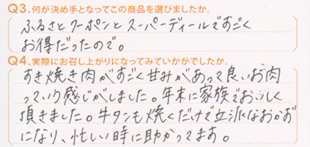 Q3.何が決め手となってこの商品を選びましたか。
ふるさとクーポンとスーパーディールですごく
お得だったので。
Q4.実際にお召し上がりになってみていかがでしたか。
すき焼き肉がすごく甘みがあって良いお肉
っていう感じがしました。年末に家族でおいしく
頂きました。牛タンも焼くだけで立派なおかず
になり、忙しい時に助かってます。